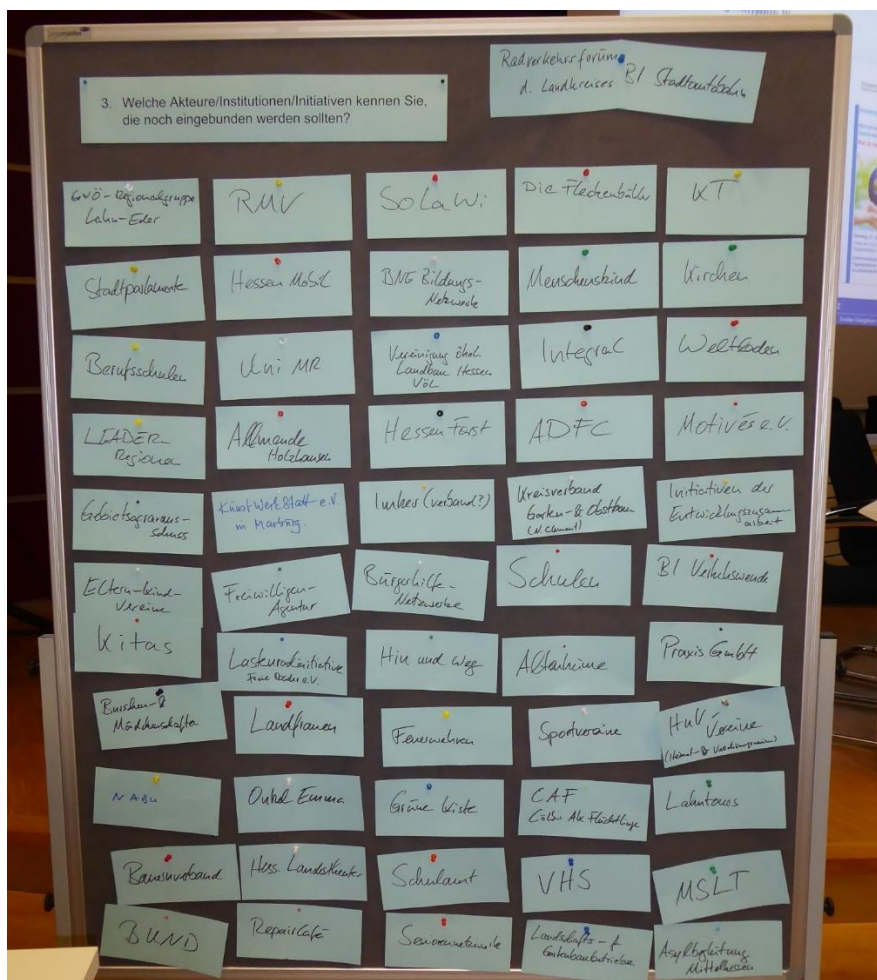 3. Welche Akteure/Institutionen/Initiativen kennen Sie,
die noch eingebunden werden sollten?
Radverkehrsforum
d. Landkreises
BI Stadtautobahn
GWÖ-Regionalgruppe
Lahn-Eder
RMV
SoLaWi
Die Fleckenbühler
KT
Stadtparlamente
Hessen Mobil
BNE Bildungs-
Netzwerke
Menschenskind
Kirchen
Berufsschulen
Uni MR
Vereinigung ökol.
Landbau Hessen
VÖL
Integral
Weltladen
LEADER-
Regionen
Allmende
Holzhausen
Hessen Forst
ADFC
Motivés e.V.
Gebietsagraraus-
schuss
KunstWerkStatt e.V.
in Marburg.
Imker (verband?)
Kreisverband
Garten- & Obstbau
(N. Clement)
Initiativen der
Entwicklungszusam
arbeit
Eltern-Kind-
Vereine
Freiwilligen-
Agentur
Bürgerhilfe-
Netzwerke
Schulen
BI Verkehrswende
Kitas
Lastenradinitiative
Freie Räder e.V.
Hin und Weg
Altenheime
Praxis GmbH
Burschen- &
Mädchenschaften
Landfrauen
Feuerwehren
Sportvereine
HuV
Vereine
(Heimat- & Verschönerungsverein)
NABU
Onkel Emma
Grüne Kiste
CAF
Cölber Ak Flüchtlinge
Lahntaus
Bauernverband
Hess. Landestheater
Schulamt
VHS
MSLT
BUND
RepairCafé
Seniorennetzwerke
Landschafts- &
Gartenbaubetriebe
Asylbegleitung
Mittelhessen